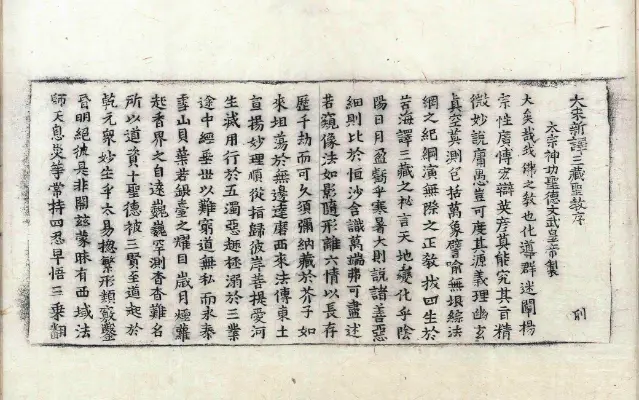 大宋新譯三藏聖教序
則
太宗神功聖德文武皇帝製
大矣哉我佛之教也化導群迷闡揚
宗性廣博宏辯英彥莫能究其旨精
微妙說庸愚豈可度其源義理幽玄
真空莫測包括萬象譬喻無垠綜法
網之紀綱演無際之正教拔四生於
苦海譯三藏之秘言天地變化乎陰
陽日月盈虧乎寒暑大則說諸善惡
細則比於恒沙含識萬端弗可盡述
若窺像法如影隨形離六情以長存
歷千劫而可久須彌納藏於芥子如
來坦蕩於無邊達磨西來法傳東土
宣揚妙理順從指歸彼岸菩提愛河
生滅用行於五濁惡趣拯溺於三業
途中經垂世以難窮道無私而永泰
雪山貝葉若銀臺之耀目歲月煙蘿
起香界之自遠巍巍罕測杳杳難名
所以道資十聖德被三賢至道起於
乾元衆妙生乎太易摠繁形類竅鑿
昏明絕彼是非開茲蒙昧有西域法
師天息災等常持四忍早悟三乘翻